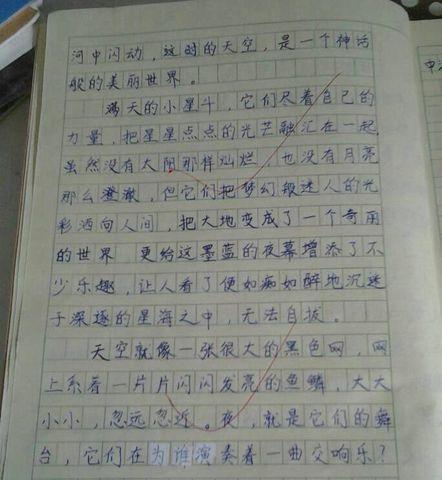 河中闪动，这时的天空，是一个神话
般的美丽世界。
满天的小星斗，它们尽着自己的
力量，把星星点点的光芒融汇在一起
虽然没有太阳那样灿烂，也没有月亮
那么澄澈，但它们把梦幻般迷人的光
彩洒向人间，把大地变成了一个奇丽
的世界 更给这墨蓝的夜幕增添了不
少乐趣，让人看了便如痴如醉地沉迷
于深邃的星海之中，无法自拔。
天空就像一张很大的黑色网，网
上系着一片片闪闪发亮的鱼鳞，大大
小小，忽远忽近。夜，就是它们的舞
台，它们在为谁演奏着一曲交响乐？